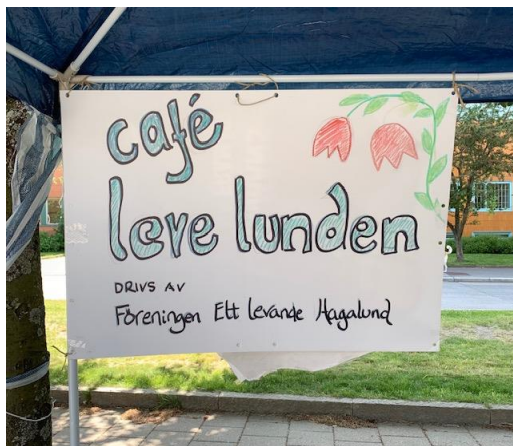 café
leve lunden
DRIVS AV
Föreningen Ett levande Hagalund